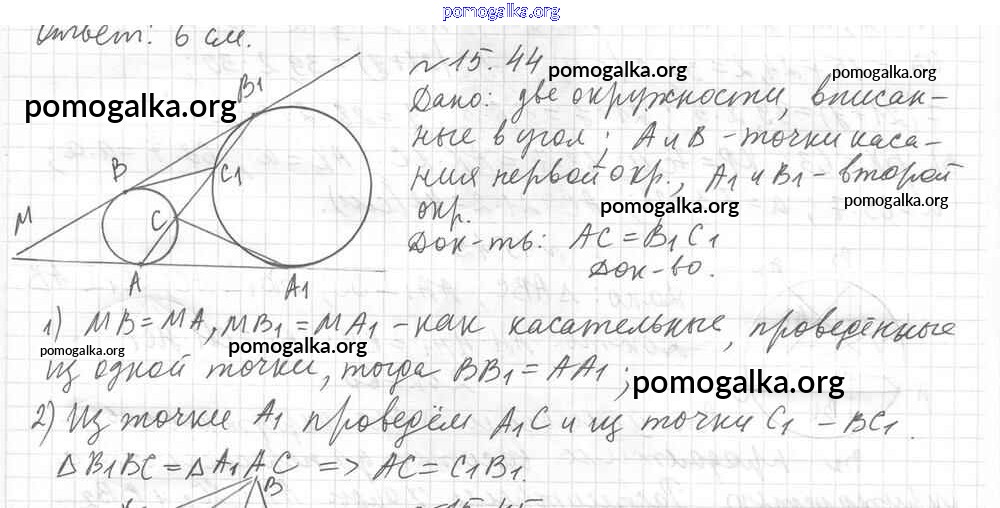 pomogalka.org
Ответ: 6 см.
№ 15.44
pomogalka.org
pomogalka.org
pomogalka.org
Дано: две окружности, вписан-
ные в угол; А и В - точки каса-
ния первой окр., А1 и В1 - второй
окр.
pomogalka.org
pomogalka.org
Док-ть: AC = B1C1
Док-во.
M
B
B1
C
C1
A
A1
1) MB = MA, MB1 = MA1 - как касательные, проведённые
pomogalka.org
pomogalka.org
из одной точки, тогда BB1 = AA1;
pomogalka.org
2) Из точки A1 проведём A1C и из точки C1 - BC1.
Δ B1BC = Δ A1AC => AC = C1B1.
B
15.45